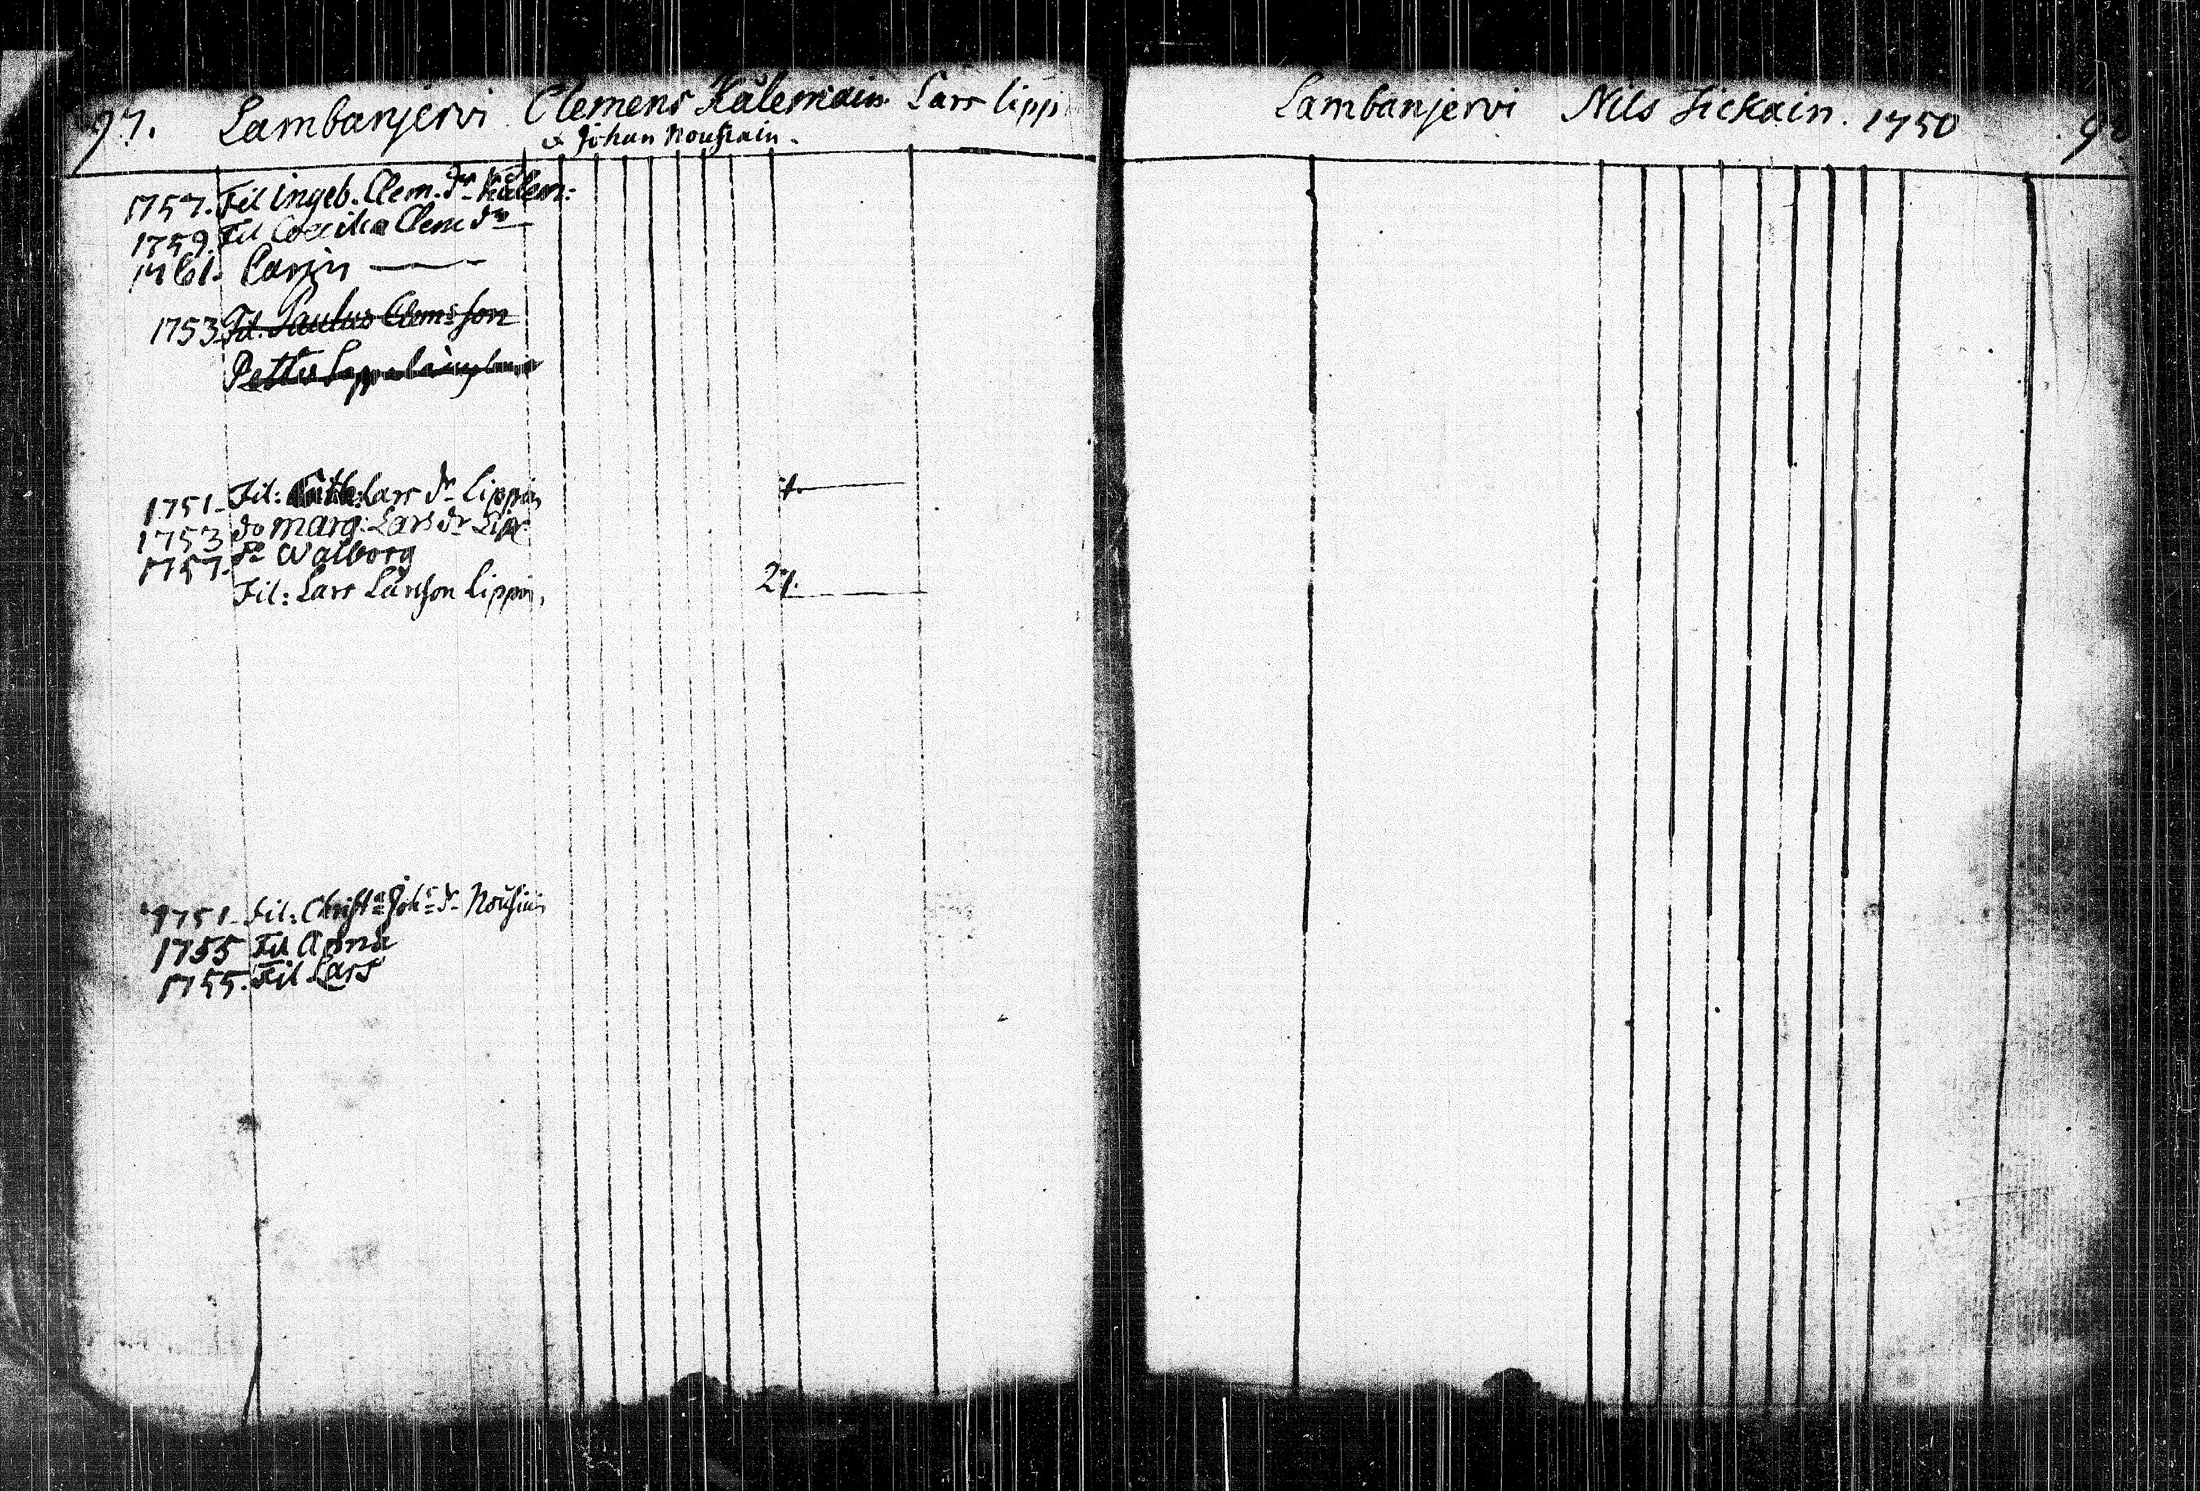 97. Lambanjerwi Clemens Kålemain Lars lipp
& Johan Nousiain.
1757. Fil ingeb. Clem. dr Kålem:
1759. Fil Cœcilia Clem dr
1761. Carin
1753 Fil. Paulus Clemsson
Petter
1751 Fil: Lars dr lippin
1753 do marg: Lars dr Lip
1757. do Walborg
Fil: Lars Larsson lippin, 27.
1751 Fil: Christ Joh dr Nousiain
1755 Fil Anna
1755. Fil Lars
Lambanjerwi Nils Fickain. 1750